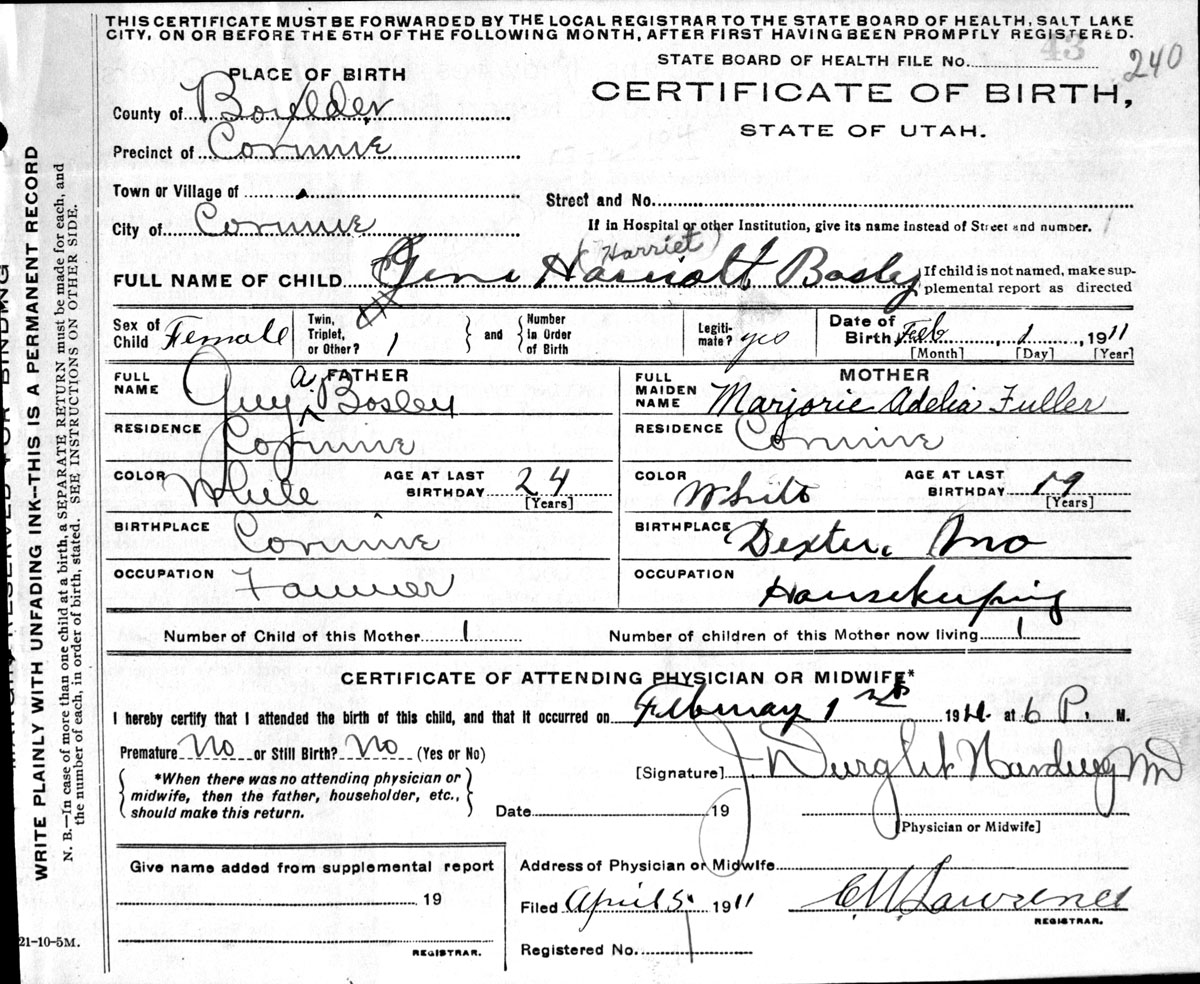 THIS CERTIFICATE MUST BE FORWARDED BY THE LOCAL REGISTRAR TO THE STATE BOARD OF HEALTH, SALT LAKE
CITY, ON OR BEFORE THE 5TH OF THE FOLLOWING MONTH, AFTER FIRST HAVING BEEN PROMPTLY REGISTERED.
43
STATE BOARD OF HEALTH FILE No. 240
PLACE OF BIRTH
CERTIFICATE OF BIRTH,
STATE OF UTAH.
County of Boxelder
Precinct of Corinne
Town or Village of
Street and No.
City of Corinne
If in Hospital or other Institution, give its name instead of Street and number.
(Harriet)
FULL NAME OF CHILD Gene Harriott Bosley
If child is not named, make supplemental report as directed
Sex of Child Female
Twin, Triplet, or Other? 1 and Number in Order of Birth
Legitimate? yes
Date of Birth, Feb 1, 1911
[Month] [Day] [Year]
FATHER
MOTHER
FULL NAME Guy A. Bosley
FULL MAIDEN NAME Marjorie Adelia Fuller
RESIDENCE Corinne
RESIDENCE Corinne
COLOR White AGE AT LAST BIRTHDAY 24 [Years]
COLOR White AGE AT LAST BIRTHDAY 19 [Years]
BIRTHPLACE Corinne
BIRTHPLACE Dexter, Mo
OCCUPATION Farmer
OCCUPATION Housekeeping
Number of Child of this Mother 1
Number of children of this Mother now living 1
CERTIFICATE OF ATTENDING PHYSICIAN OR MIDWIFE*
I hereby certify that I attended the birth of this child, and that it occurred on February 1st 1911. at 6 P. M.
Premature No or Still Birth? No (Yes or No)
*When there was no attending physician or
midwife, then the father, householder, etc.,
should make this return.
[Signature] J Dwight Harding MD
Date 19
[Physician or Midwife]
Give name added from supplemental report
19
REGISTRAR.
Address of Physician or Midwife
Filed April 5, 1911 C M Lawrence
REGISTRAR.
Registered No.
21-10-5M.
MARGIN RESERVED FOR BINDING
WRITE PLAINLY WITH UNFADING INK—THIS IS A PERMANENT RECORD
N. B.—In case of more than one child at a birth, a SEPARATE RETURN must be made for each, and
the number of each, in order of birth, stated. SEE INSTRUCTIONS ON OTHER SIDE.